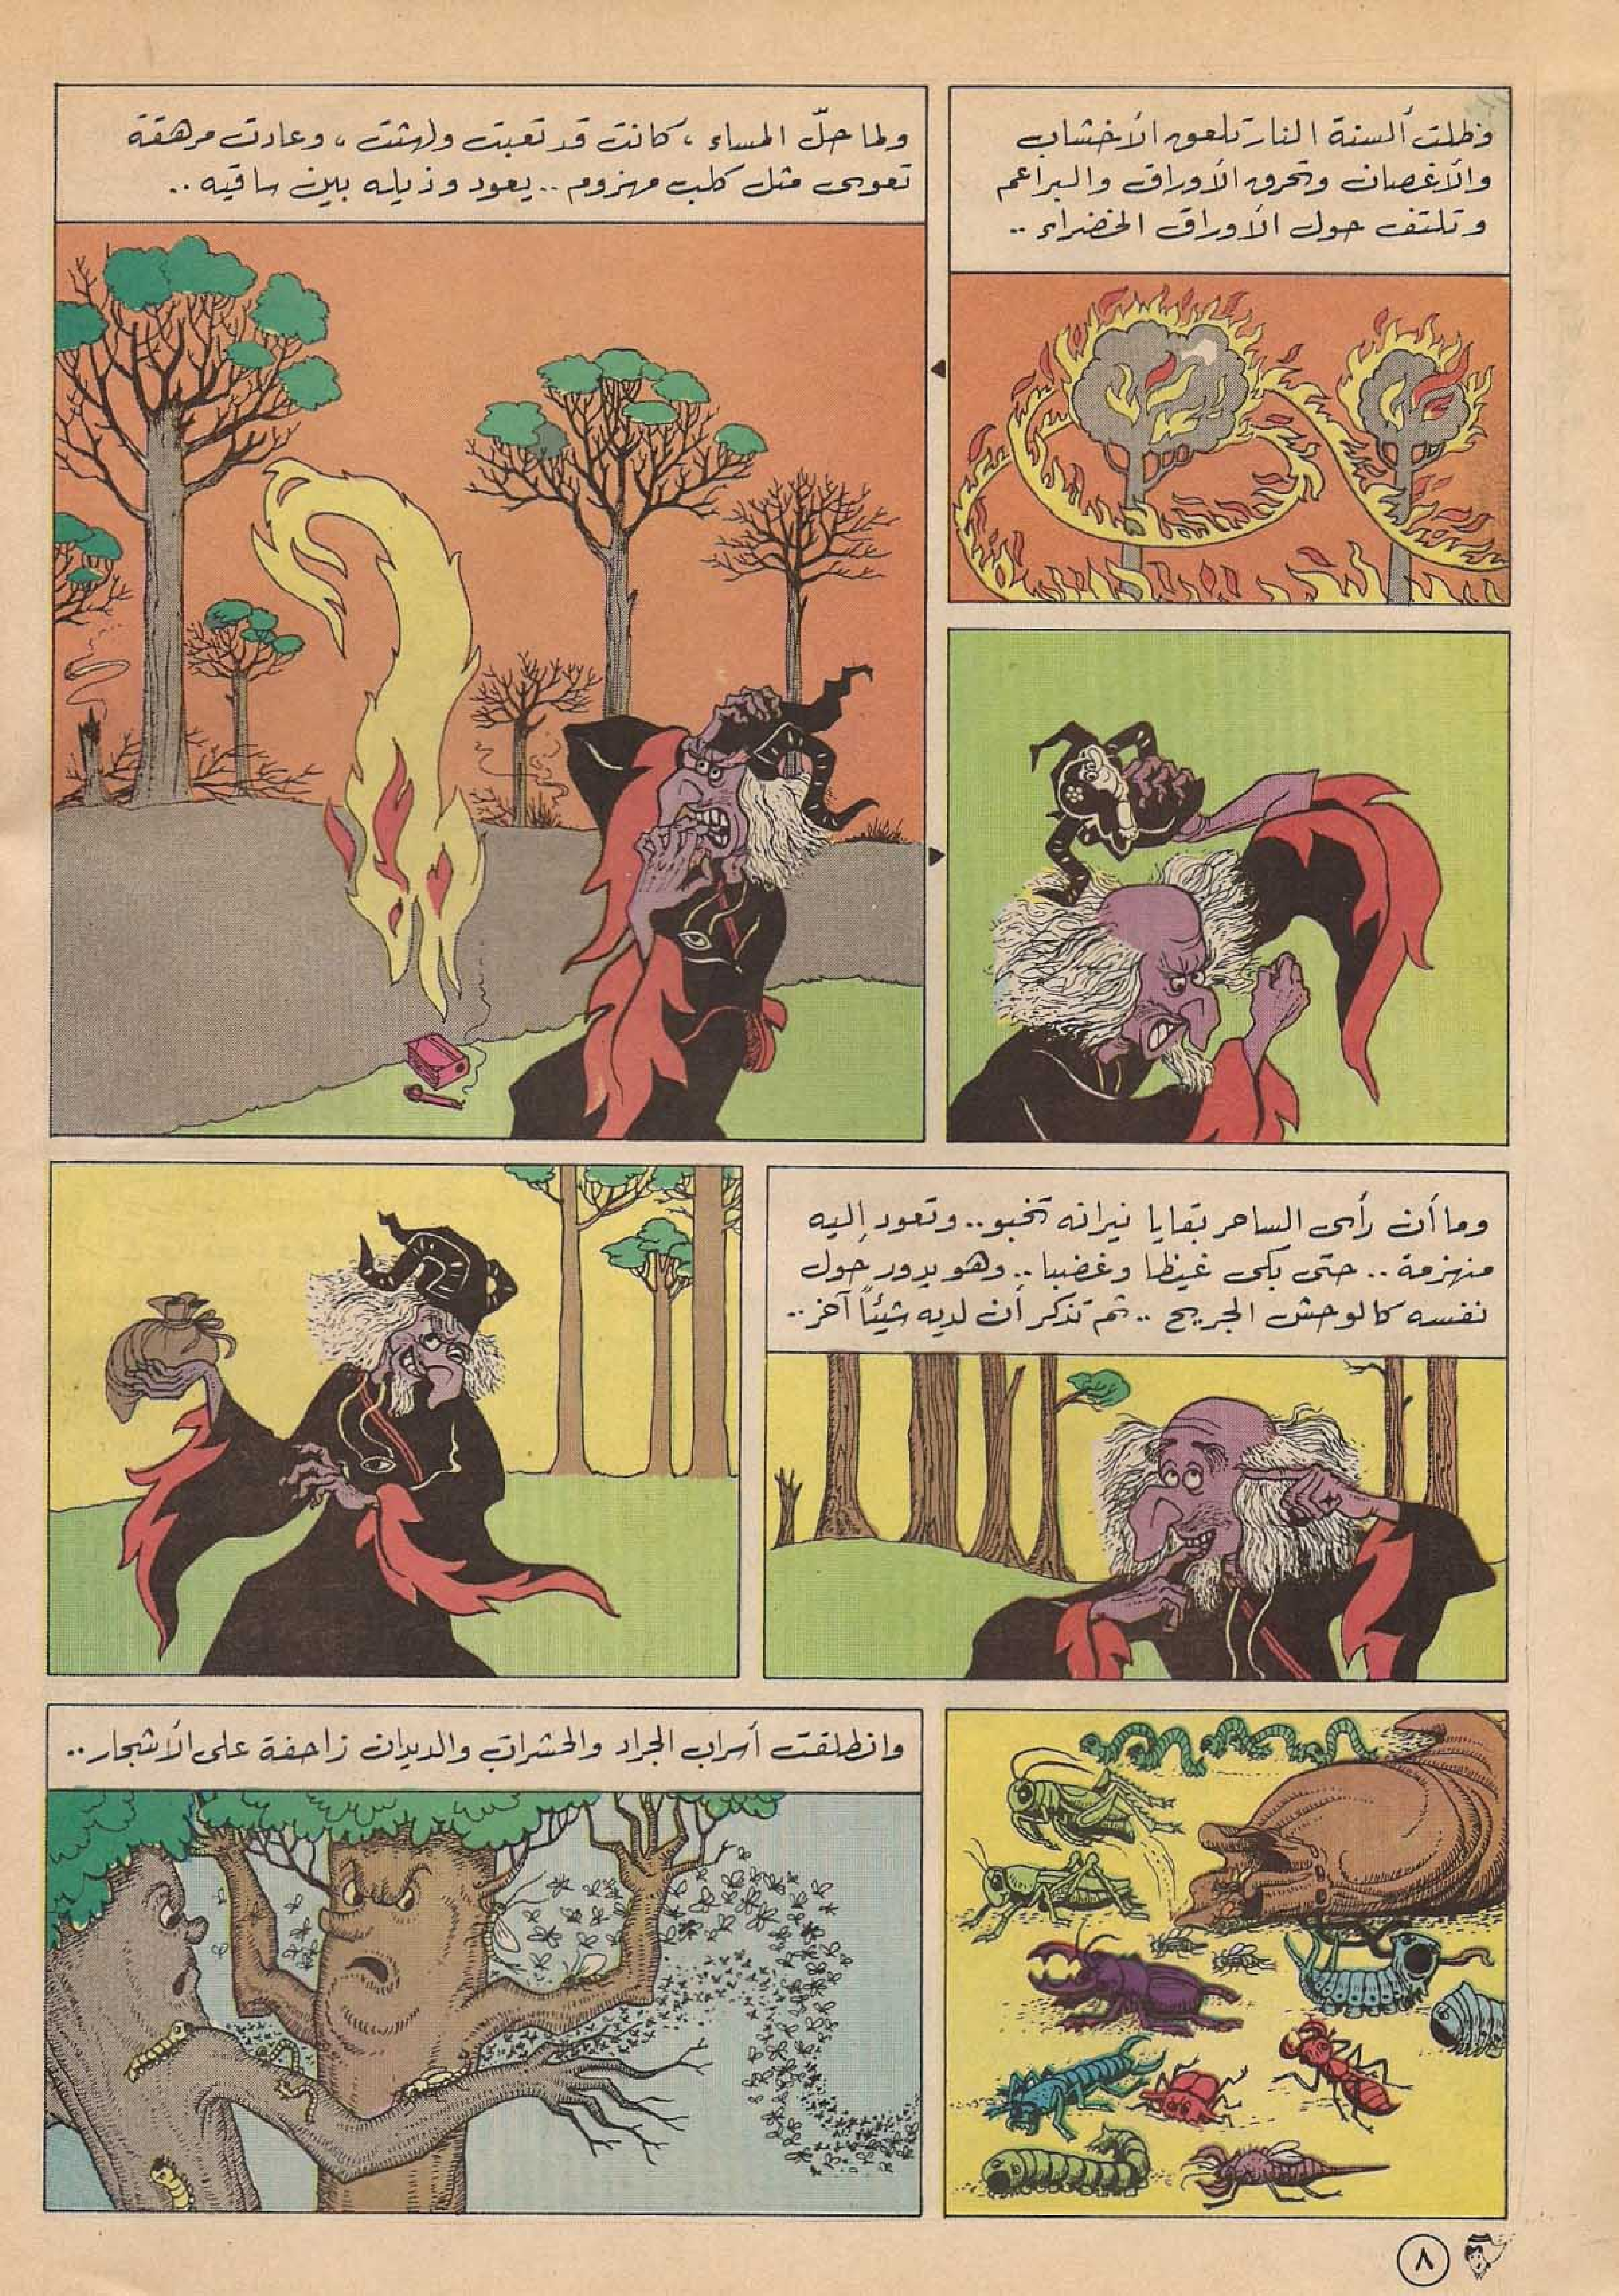 وظلت ألسنة النار تلعق الأخشاب
والأغصان وتحرق الأوراق والبراعم
وتلتف حول الأوراق الخضراء ..
ولما حلّ المساء ، كانت قد تعبت ولهثت ، وعادت مرهقة
تعوى مثل كلب مهزوم .. يعود وذيله بين ساقيه ..
وما أن رأى الساحر بقايا نيرانه تخبو .. وتعود إليه
منهزمة .. حتى بكى غيظا وغضبا .. وهو يدور حول
نفسه كالوحش الجريح .. ثم تذكر أن لديه شيئاً آخر ..
وانطلقت أسراب الجراد والحشرات والديدان زاحفة على الأشجار ..
٨